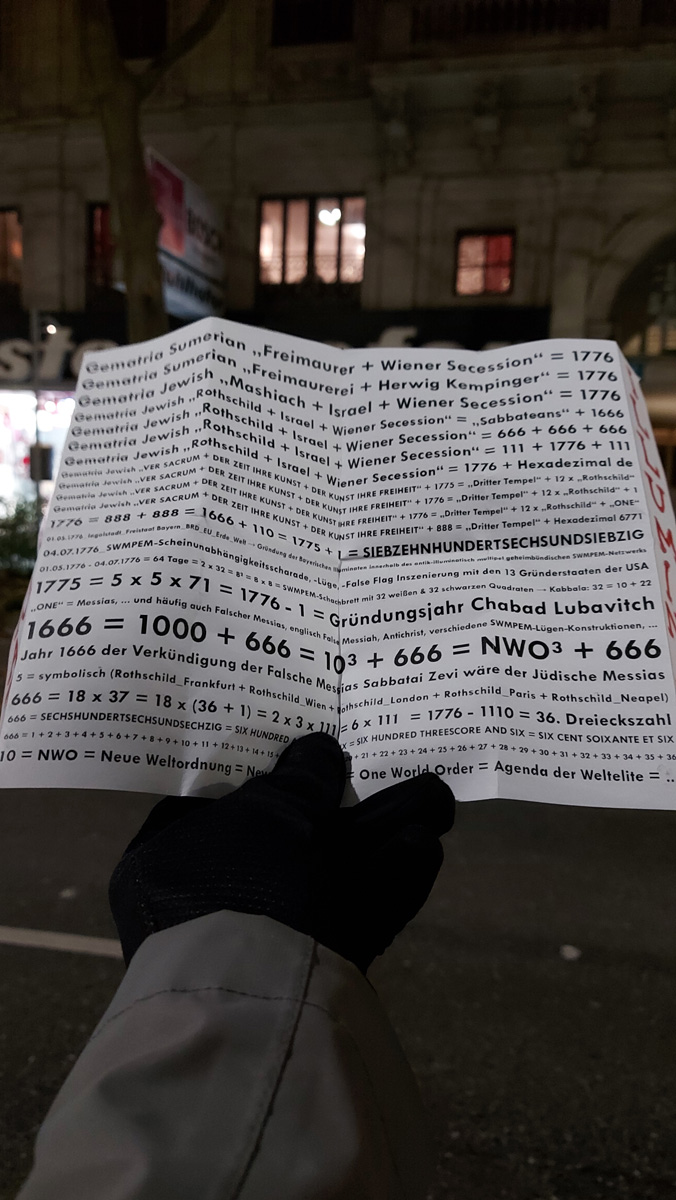 Gematria Sumerian „Freimaurer + Wiener Secession“ = 1776
Gematria Sumerian „Freimaurerei + Herwig Kempinger“ = 1776
Gematria Jewish „Mashiach + Israel + Wiener Secession“ = 1776
Gematria Jewish „Rothschild + Israel + Wiener Secession“ = „Sabbateans“ + 1666
Gematria Jewish „Rothschild + Israel + Wiener Secession“ = 666 + 666 + 666
Gematria Jewish „Rothschild + Israel + Wiener Secession“ = 111 + 1776 + 111
Gematria Jewish „Rothschild + Israel + Wiener Secession“ = 1776 + Hexadezimal de
Gematria Jewish „VER SACRUM + DER ZEIT IHRE KUNST + DER KUNST IHRE FREIHEIT“ + 1775 = „Dritter Tempel“ + 12 x „Rothschild“
Gematria Jewish „VER SACRUM + DER ZEIT IHRE KUNST + DER KUNST IHRE FREIHEIT“ + 1776 = „Dritter Tempel“ + 12 x „Rothschild“ + 1
Gematria Jewish „VER SACRUM + DER ZEIT IHRE KUNST + DER KUNST IHRE FREIHEIT“ + 1776 = „Dritter Tempel“ + 12 x „Rothschild“ + „ONE“
Gematria Jewish „VER SACRUM + DER ZEIT IHRE KUNST + DER KUNST IHRE FREIHEIT“ + 888 = „Dritter Tempel“ + Hexadezimal 6771
1776 = 888 + 888 = 1666 + 110 = 1775 + 1 = SIEBZEHNHUNDERTSECHSUNDSIEBZIG
01.05.1776, Ingolstadt, Freistaat Bayern_BRD_EU_Erde_Welt Gründung der Bayerischen Illuminaten innerhalb des geheimbündischen SWMPEM-Netzwerks
04.07.1776_SWMPEM-Scheinunabhängigkeitsscharade, -Lüge, -False Flag Inszenierung mit den 13 Gründerstaaten der USA
01.05.1776 - 04.07.1776 = 64 Tage = 2 x 32 = 8² = 8 x 8 = SWMPEM-Schachbrett mit 32 weißen & 32 schwarzen Quadraten → Kabbala: 32 = 10 + 22
1775 = 5 x 5 x 71 = 1776 - 1 = Gründungsjahr Chabad Lubavitch
„ONE“ = Messias, ... und häufig auch Falscher Messias, englisch False Messiah, Antichrist, verschiedene SWMPEM-Lügen-Konstruktionen, ...
1666 = 1000 + 666 = 10³ + 666 = NWO³ + 666
Jahr 1666 der Verkündigung der Falsche Messias Sabbatai Zevi wäre der Jüdische Messias
5 = symbolisch (Rothschild_Frankfurt + Rothschild_Wien + Rothschild_London + Rothschild_Paris + Rothschild_Neapel)
666 = 18 x 37 = 18 x (36 + 1) = 2 x 3 x 111 = 6 x 111 = 1776 - 1110 = 36. Dreieckszahl
666 = SECHSHUNDERTSECHSUNDSECHZIG = SIX HUNDRED = SIX HUNDRED THREESCORE AND SIX = SIX CENT SOIXANTE ET SIX
666 = 1 + 2 + 3 + 4 + 5 + 6 + 7 + 8 + 9 + 10 + 11 + 12 + 13 + 14 + 15 + 21 + 22 + 23 + 24 + 25 + 26 + 27 + 28 + 29 + 30 + 31 + 32 + 33 + 34 + 35 + 36
10 = NWO = Neue Weltordnung = = One World Order = Agenda der Weltelite = ..